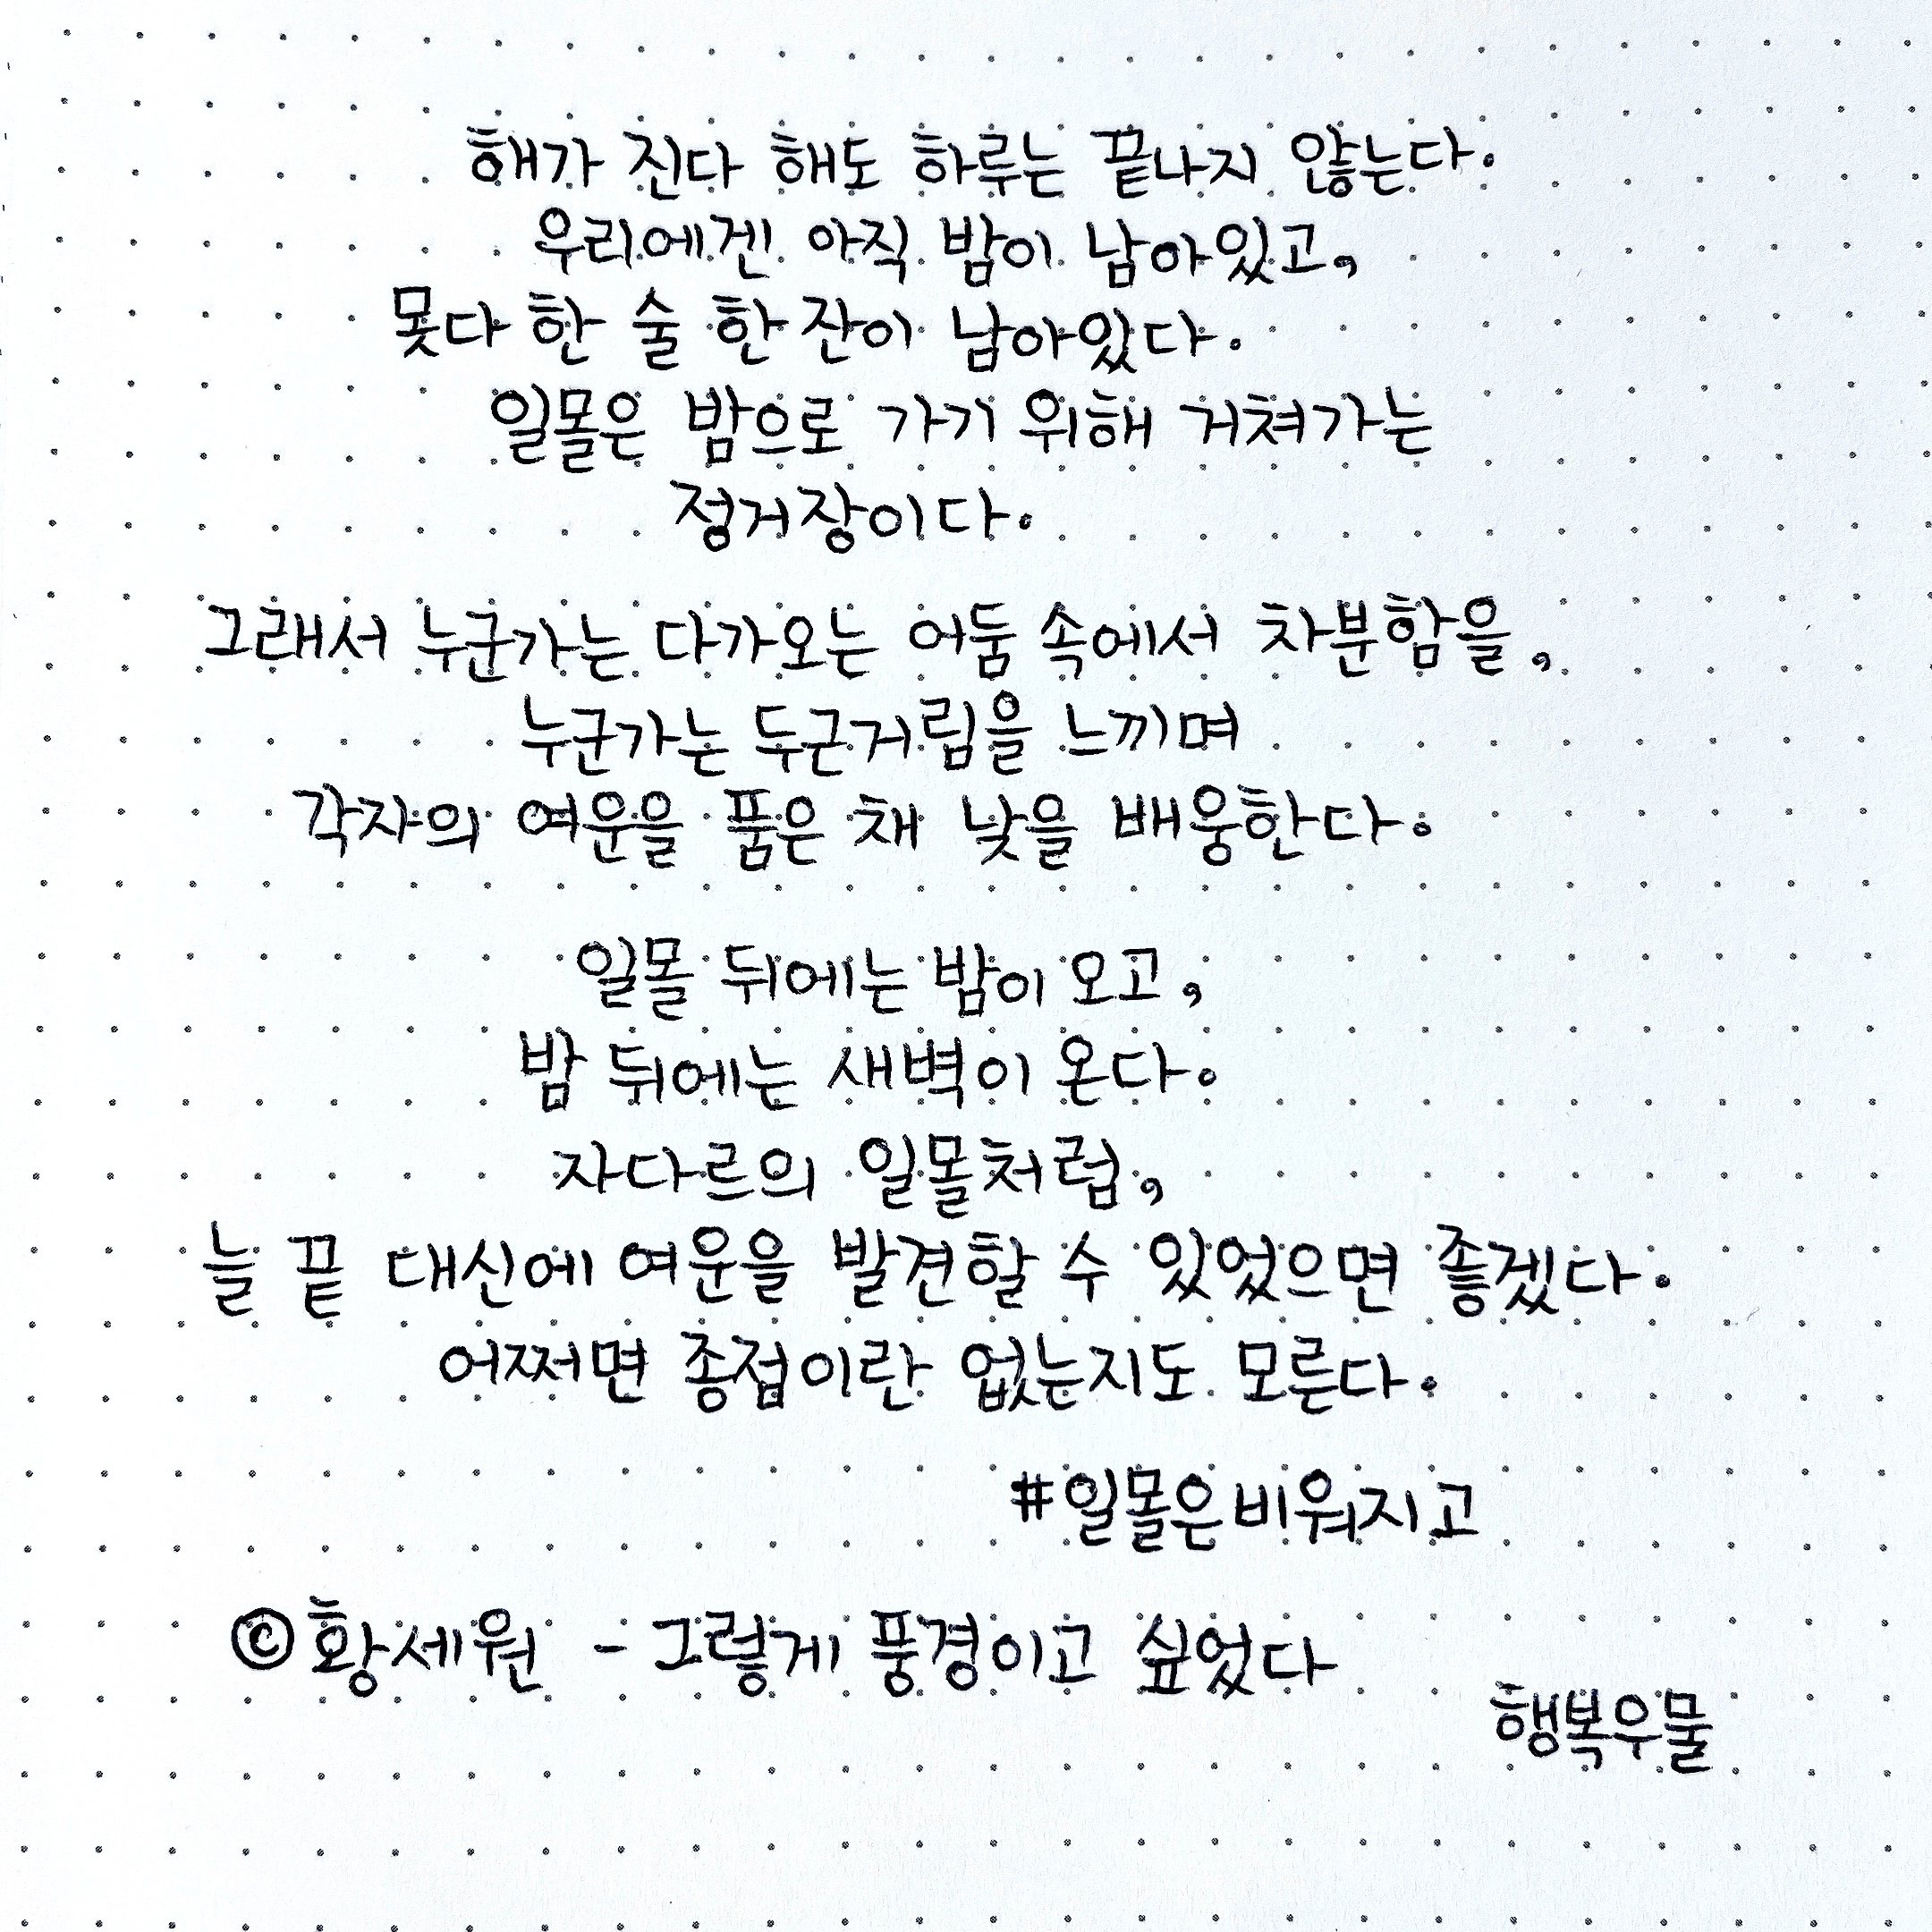 해가 진다 해도 하루는 끝나지 않는다.
우리에겐 아직 밤이 남아있고,
못다 한 술 한 잔이 남아있다.
일몰은 밤으로 가기 위해 거쳐가는
정거장이다.
그래서 누군가는 다가오는 어둠 속에서 차분함을,
누군가는 두근거림을 느끼며
각자의 여운을 품은 채 낮을 배웅한다.
일몰 뒤에는 밤이 오고,
밤 뒤에는 새벽이 온다.
자다르의 일몰처럼,
늘 끝 대신에 여운을 발견할 수 있었으면 좋겠다.
어쩌면 종접이란 없는지도 모른다.
#일몰은비워지고
©황세원 - 그렇게 풍경이고 싶었다
행복우물